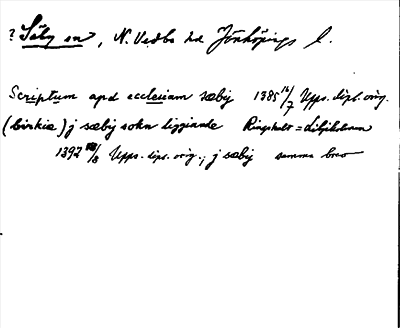 ? Säby sn, N. Vedbo hd Jönköpings l.
Scriptum apd ecclesiam sæbij 1385 16/7 Upps. dipl. orig.
(birkiæ) j sæbij sokn liggiande Ringhult = Liljeholmen
1392 /8 Upps. dipl. orig., j sæbij samma brev